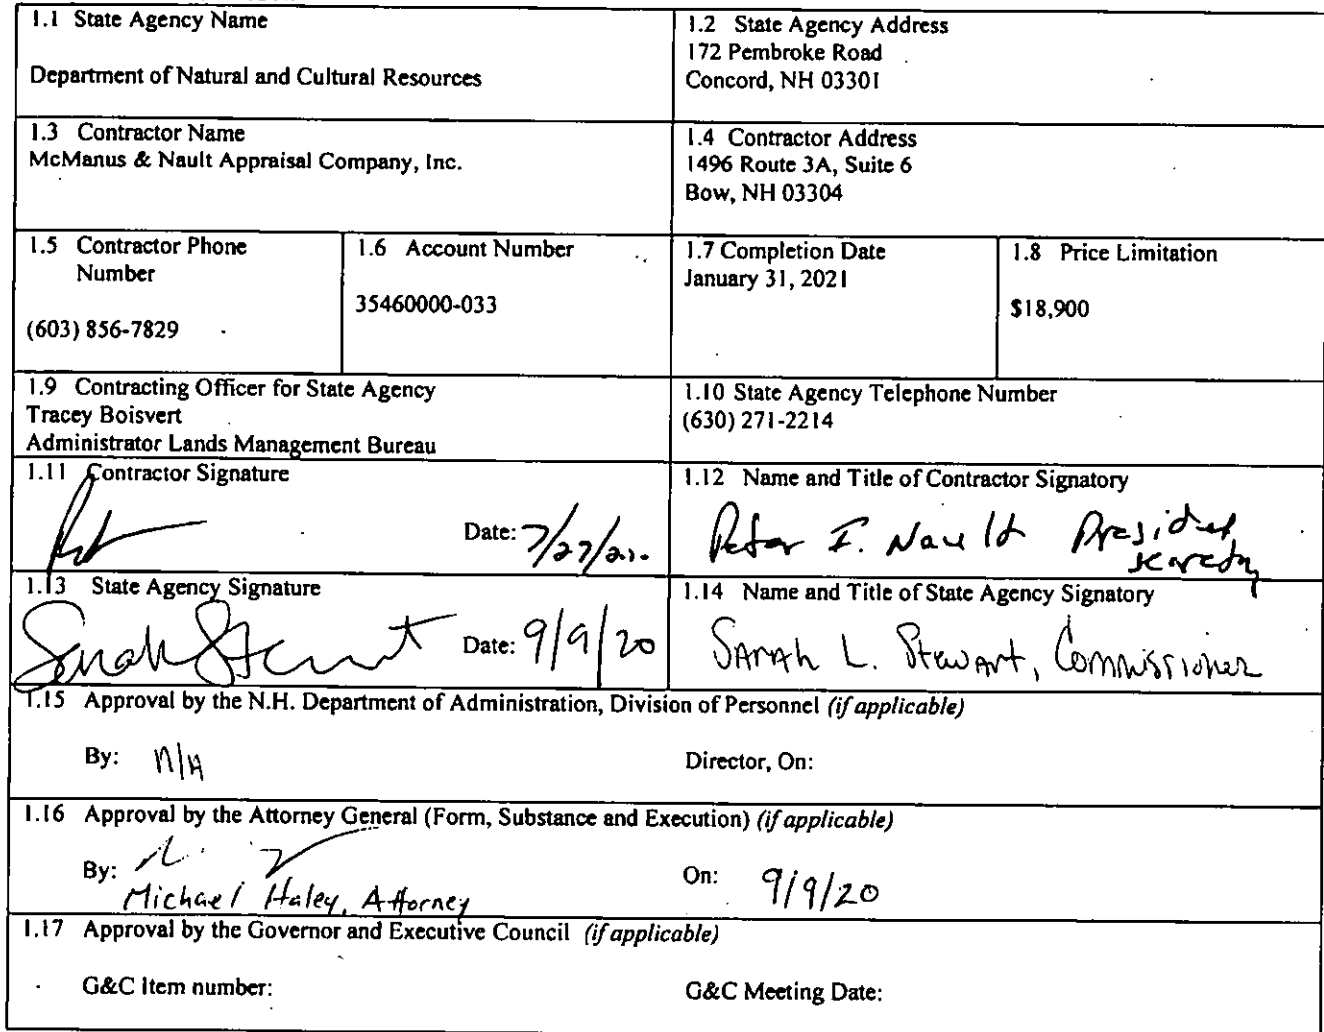 1.1 State Agency Name
Department of Natural and Cultural Resources
1.2 State Agency Address
172 Pembroke Road
Concord, NH 03301
1.3 Contractor Name
McManus & Nault Appraisal Company, Inc.
1.4 Contractor Address
1496 Route 3A, Suite 6
Bow, NH 03304
1.5 Contractor Phone
Number
(603) 856-7829
1.6 Account Number
35460000-033
1.7 Completion Date
January 31, 2021
1.8 Price Limitation
$18,900
1.9 Contracting Officer for State Agency
Tracey Boisvert
Administrator Lands Management Bureau
1.10 State Agency Telephone Number
(630) 271-2214
1.11 Contractor Signature
Date: 7/27/20
1.12 Name and Title of Contractor Signatory
Peter F. Nault President
1.13 State Agency Signature
Sarah Stewart Date: 9/9/20
1.14 Name and Title of State Agency Signatory
Sarah L. Stewart, Commissioner
1.15 Approval by the N.H. Department of Administration, Division of Personnel (if applicable)
By: N/A
Director, On:
1.16 Approval by the Attorney General (Form, Substance and Execution) (if applicable)
By:
Michael Haley, Attorney
On: 9/9/20
1.17 Approval by the Governor and Executive Council (if applicable)
G&C Item number:
G&C Meeting Date: